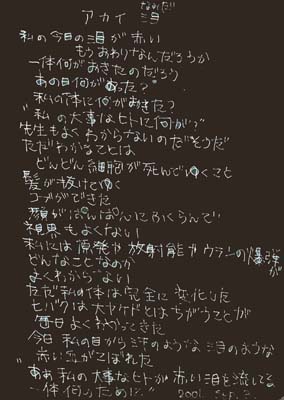 なみだ
アカイ 涙
私の今日の涙が赤い
もうおわりなんだろうか
一体何がおきたのだろう
あの日何があった?
私の体に何がおきた?
"私の大事なヒトに何が!?"
先生もよくわからないのだそうだ
ただわかることは
どんどん細胞が死んでゆくこと
髪が抜けてゆく
コブができた
顔がぱんぱんにふくらんで
視界もよくない
私には原発や放射能やウランの爆弾が
どんなことなのか
よくわからない
ただ私の体は完全に変化した
ヒバクは大ヤケドとはちがうことが
毎日よくわかってきた
今日 私の目から汗のような涙のような
赤い血がこぼれた
"ああ私の大事なヒトが赤い涙を流してる
一体何のために"